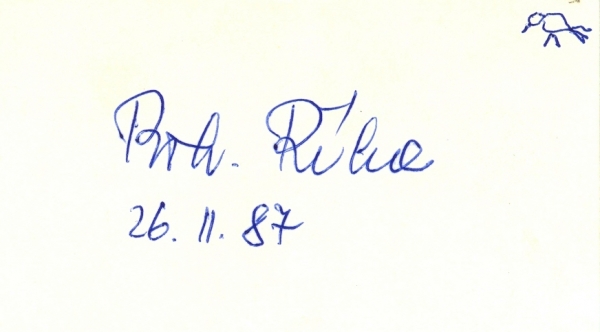 Boh. Říha
26. 11. 87